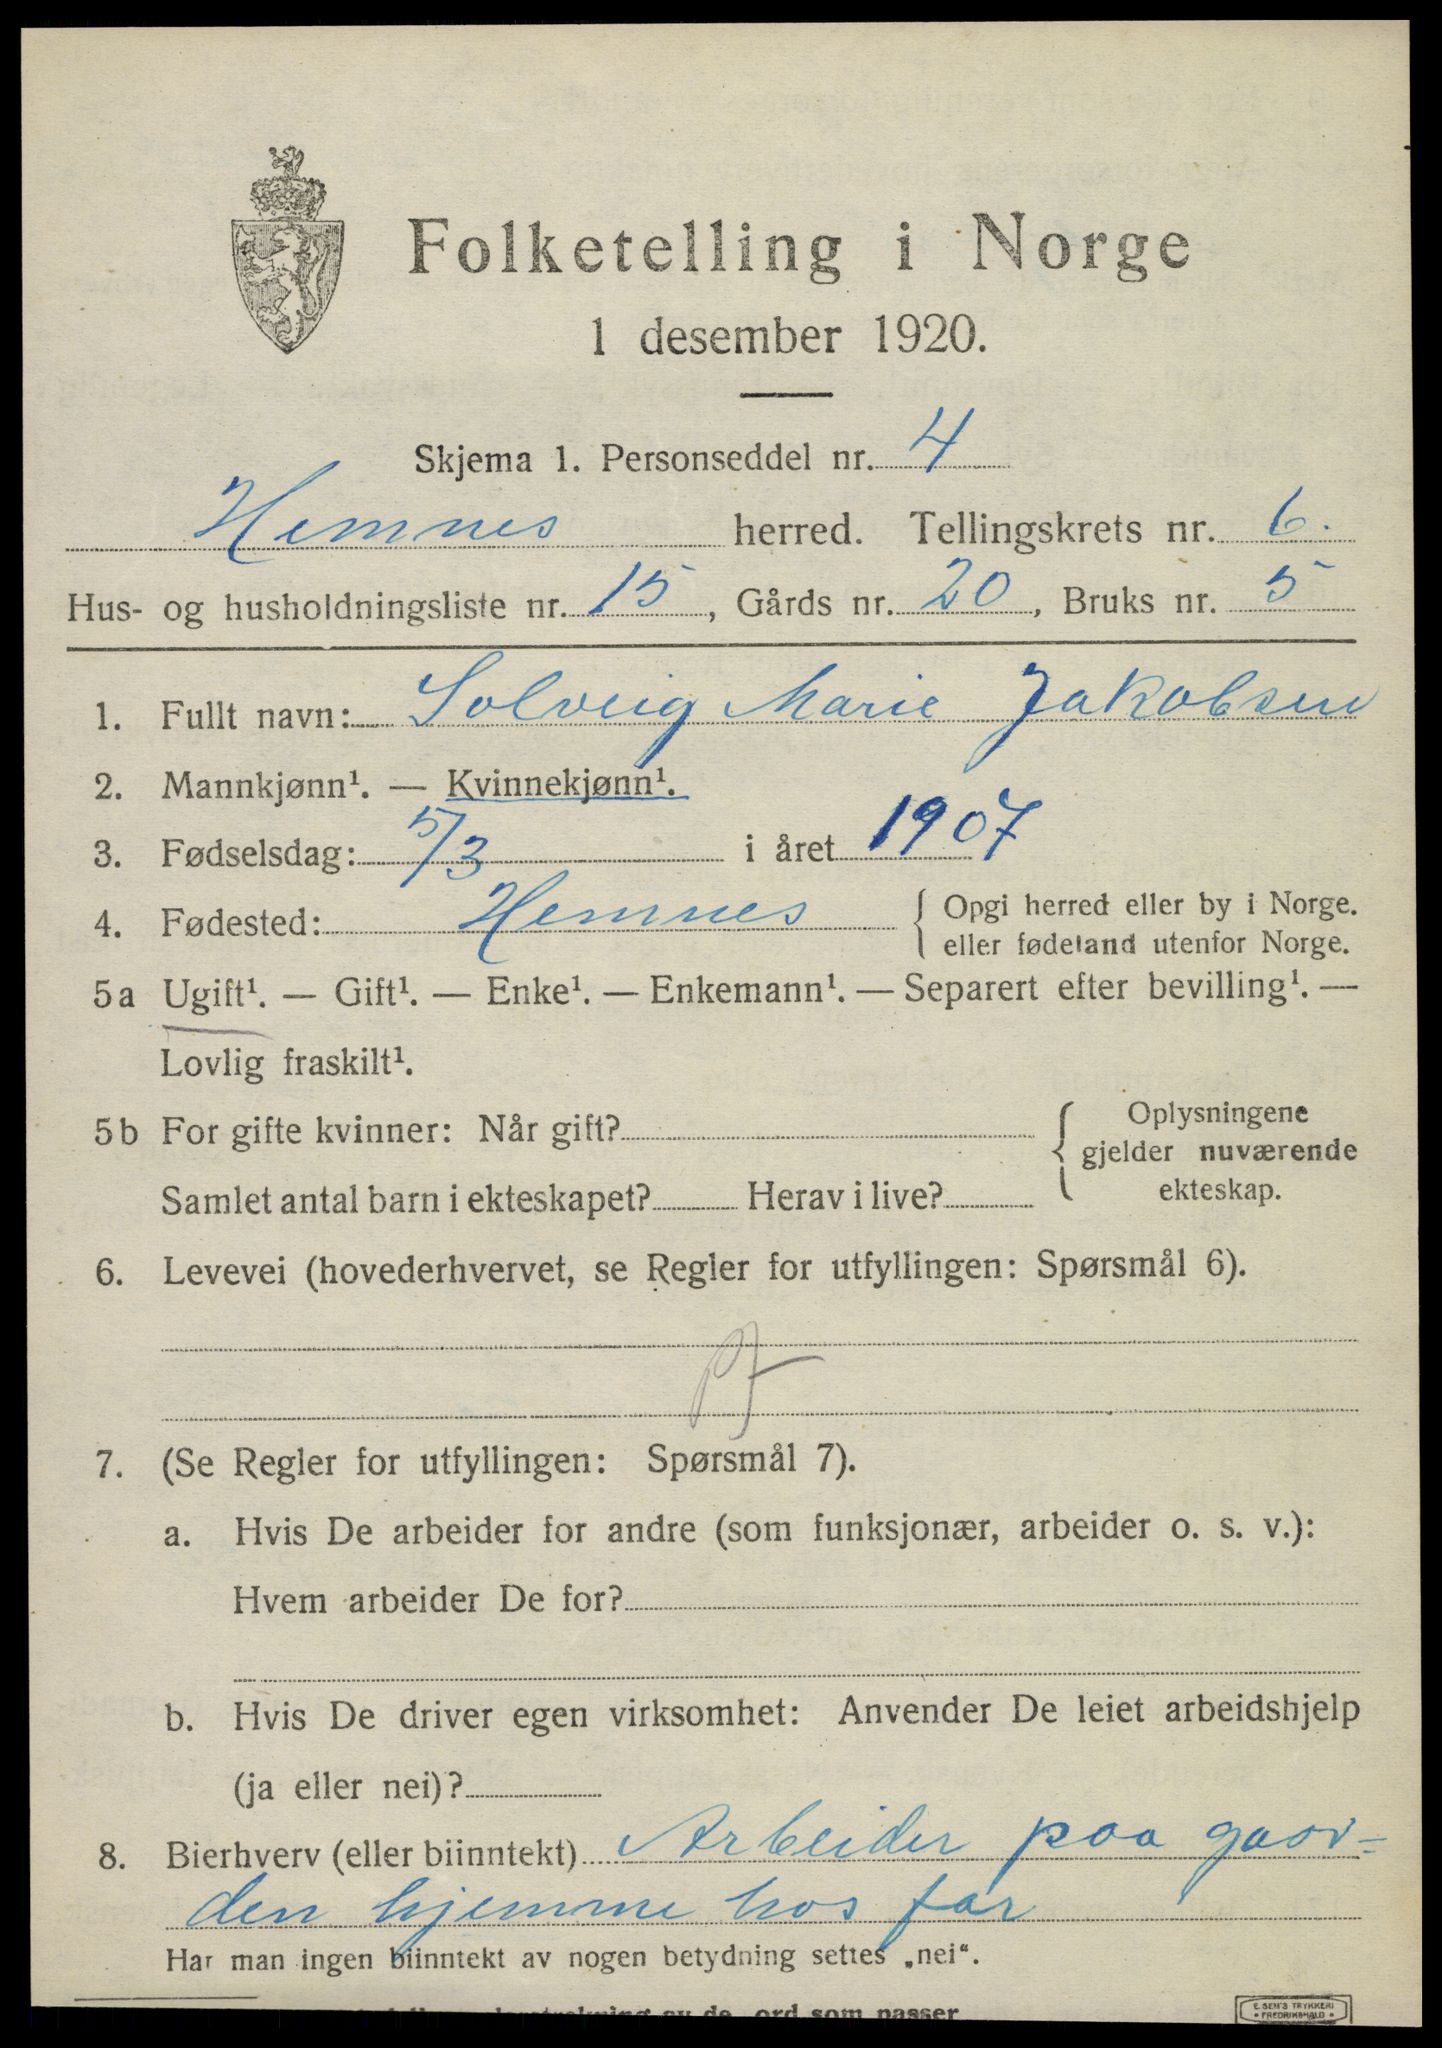 Folketelling i Norge
1 desember 1920.
Skjema 1. Personseddel nr. 4
Hemnes herred. Tellingskrets nr. 6.
Hus- og husholdningsliste nr. 15, Gårds nr. 20, Bruks nr. 5
1. Fullt navn: Solveig Marie Jakobsen
2. Mannkjønn¹. — Kvinnekjønn¹.
3. Fødselsdag: 5/3 i året 1907
4. Fødested: Hemnes { Opgi herred eller by i Norge.
eller fødeland utenfor Norge.
5a Ugift¹. — Gift¹. — Enke¹. — Enkemann¹. — Separert efter bevilling¹. —
Lovlig fraskilt¹.
5b For gifte kvinner: Når gift? { Oplysningene
gjelder nuværende
Samlet antal barn i ekteskapet? Herav i live? ekteskap.
6. Levevei (hovederhvervet, se Regler for utfyllingen: Spørsmål 6).
7. (Se Regler for utfyllingen: Spørsmål 7).
a. Hvis De arbeider for andre (som funksjonær, arbeider o. s. v.):
Hvem arbeider De for?
b. Hvis De driver egen virksomhet: Anvender De leiet arbeidshjelp
(ja eller nei)?
8. Bierhverv (eller biinntekt) Arbeider paa gaar-
den hjemme hos far
Har man ingen biinntekt av nogen betydning settes „nei“.
av de ord som passer
E. SEM'S TRYKKERI
FREDRIKSHALD